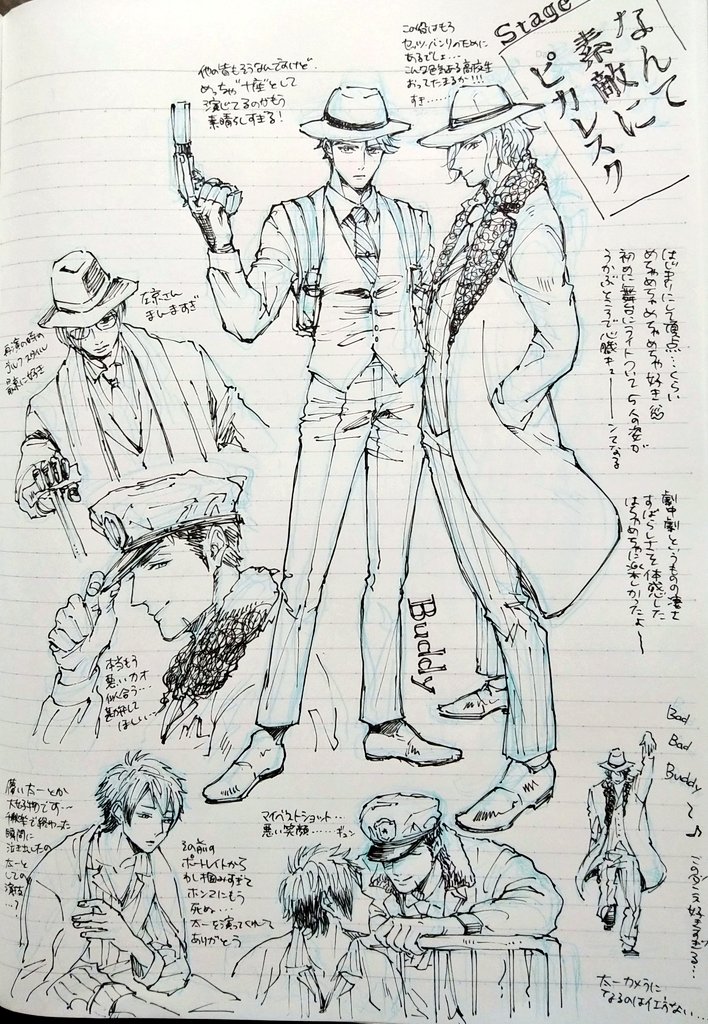 Stage
なんて
素敵に
ピカレスク
この役はもう
セッツ・バンリのために
あるでしょ…
こんな色気ある高校生
おってたまるか!!!
すき……
他の皆もそうなんですけど、
めっちゃ"十座"として
演じてるのがもう
素晴らしすぎる!
左京さん
まんますぎ
はじまりにして頂点…くらい
めちゃめちゃめちゃめちゃ好き
初めに舞台にライトついて5人の姿が
うかぶところで心臓ギュ――ンてなる
劇中劇というものの凄さ
すばらしさを体感した
はちゃめちゃに楽しかったよ〜
Buddy
本当もう
悪いカオ
似合う…
勘弁して
ほしい…
Bad
Bad
Buddy
〜♪
マイベストショット…
悪い笑顔……ギュン
その前の
ポートレイトから
わし掴みすぎて
ホンマにもう
死ぬ…
太一を演ってくれて
ありがとう
闇い太一とか
大好物です…
瞬間に
泣き出したの
太一と
しての
演技
…?
太一カメラに